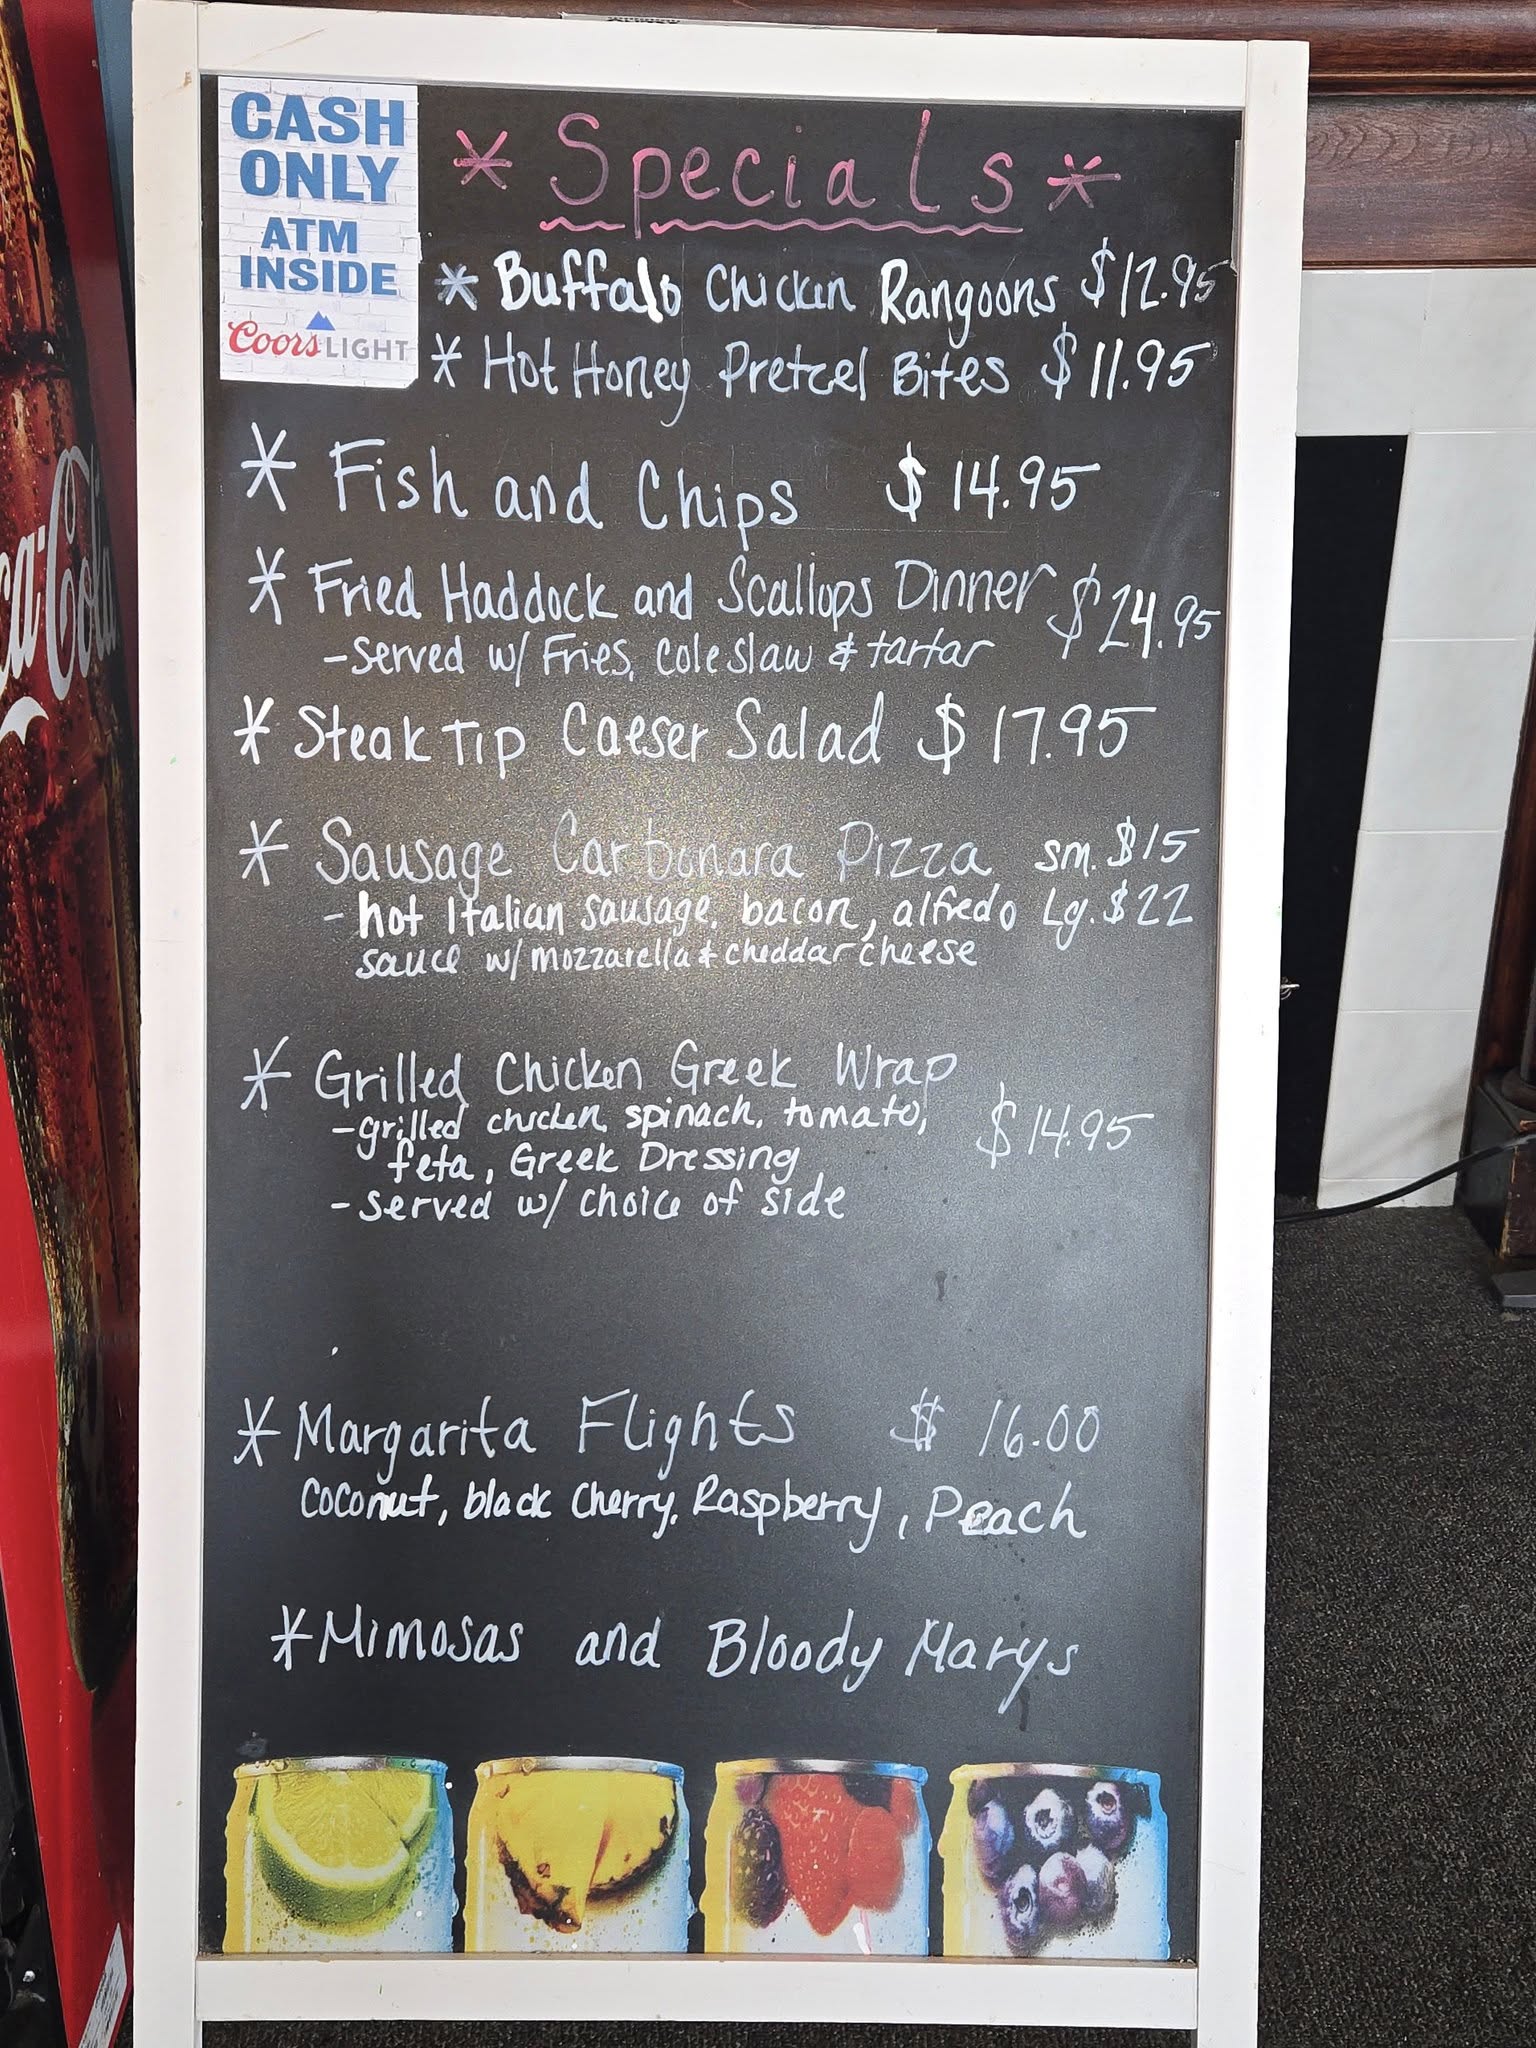 CASH
ONLY
ATM
INSIDE
Coors LIGHT
* Specials *
* Buffalo Chicken Rangoons $12.95
* Hot Honey Pretzel Bites $11.95
* Fish and Chips $14.95
* Fried Haddock and Scallops Dinner $24.95
- served w/ Fries, coleslaw & tartar
* Steak Tip Caeser Salad $17.95
* Sausage Carbonara Pizza sm. $15
- hot Italian sausage, bacon, alfredo Lg. $22
sauce w/ mozzarella & cheddar cheese
* Grilled Chicken Greek Wrap
- grilled chicken, spinach, tomato, $14.95
feta, Greek Dressing
- served w/ choice of side
* Margarita Flights $16.00
Coconut, black Cherry, Raspberry, Peach
* Mimosas and Bloody Marys
ca-Cola